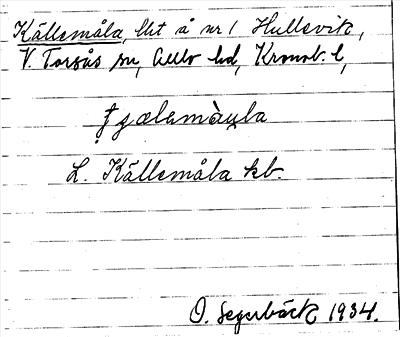 Källemåla, lht å nr 1 Hullevik,
V. Torsås sn, Allb hd, Kronob. l,
L. Källemåla kb.
O. Segerbäck 1934.